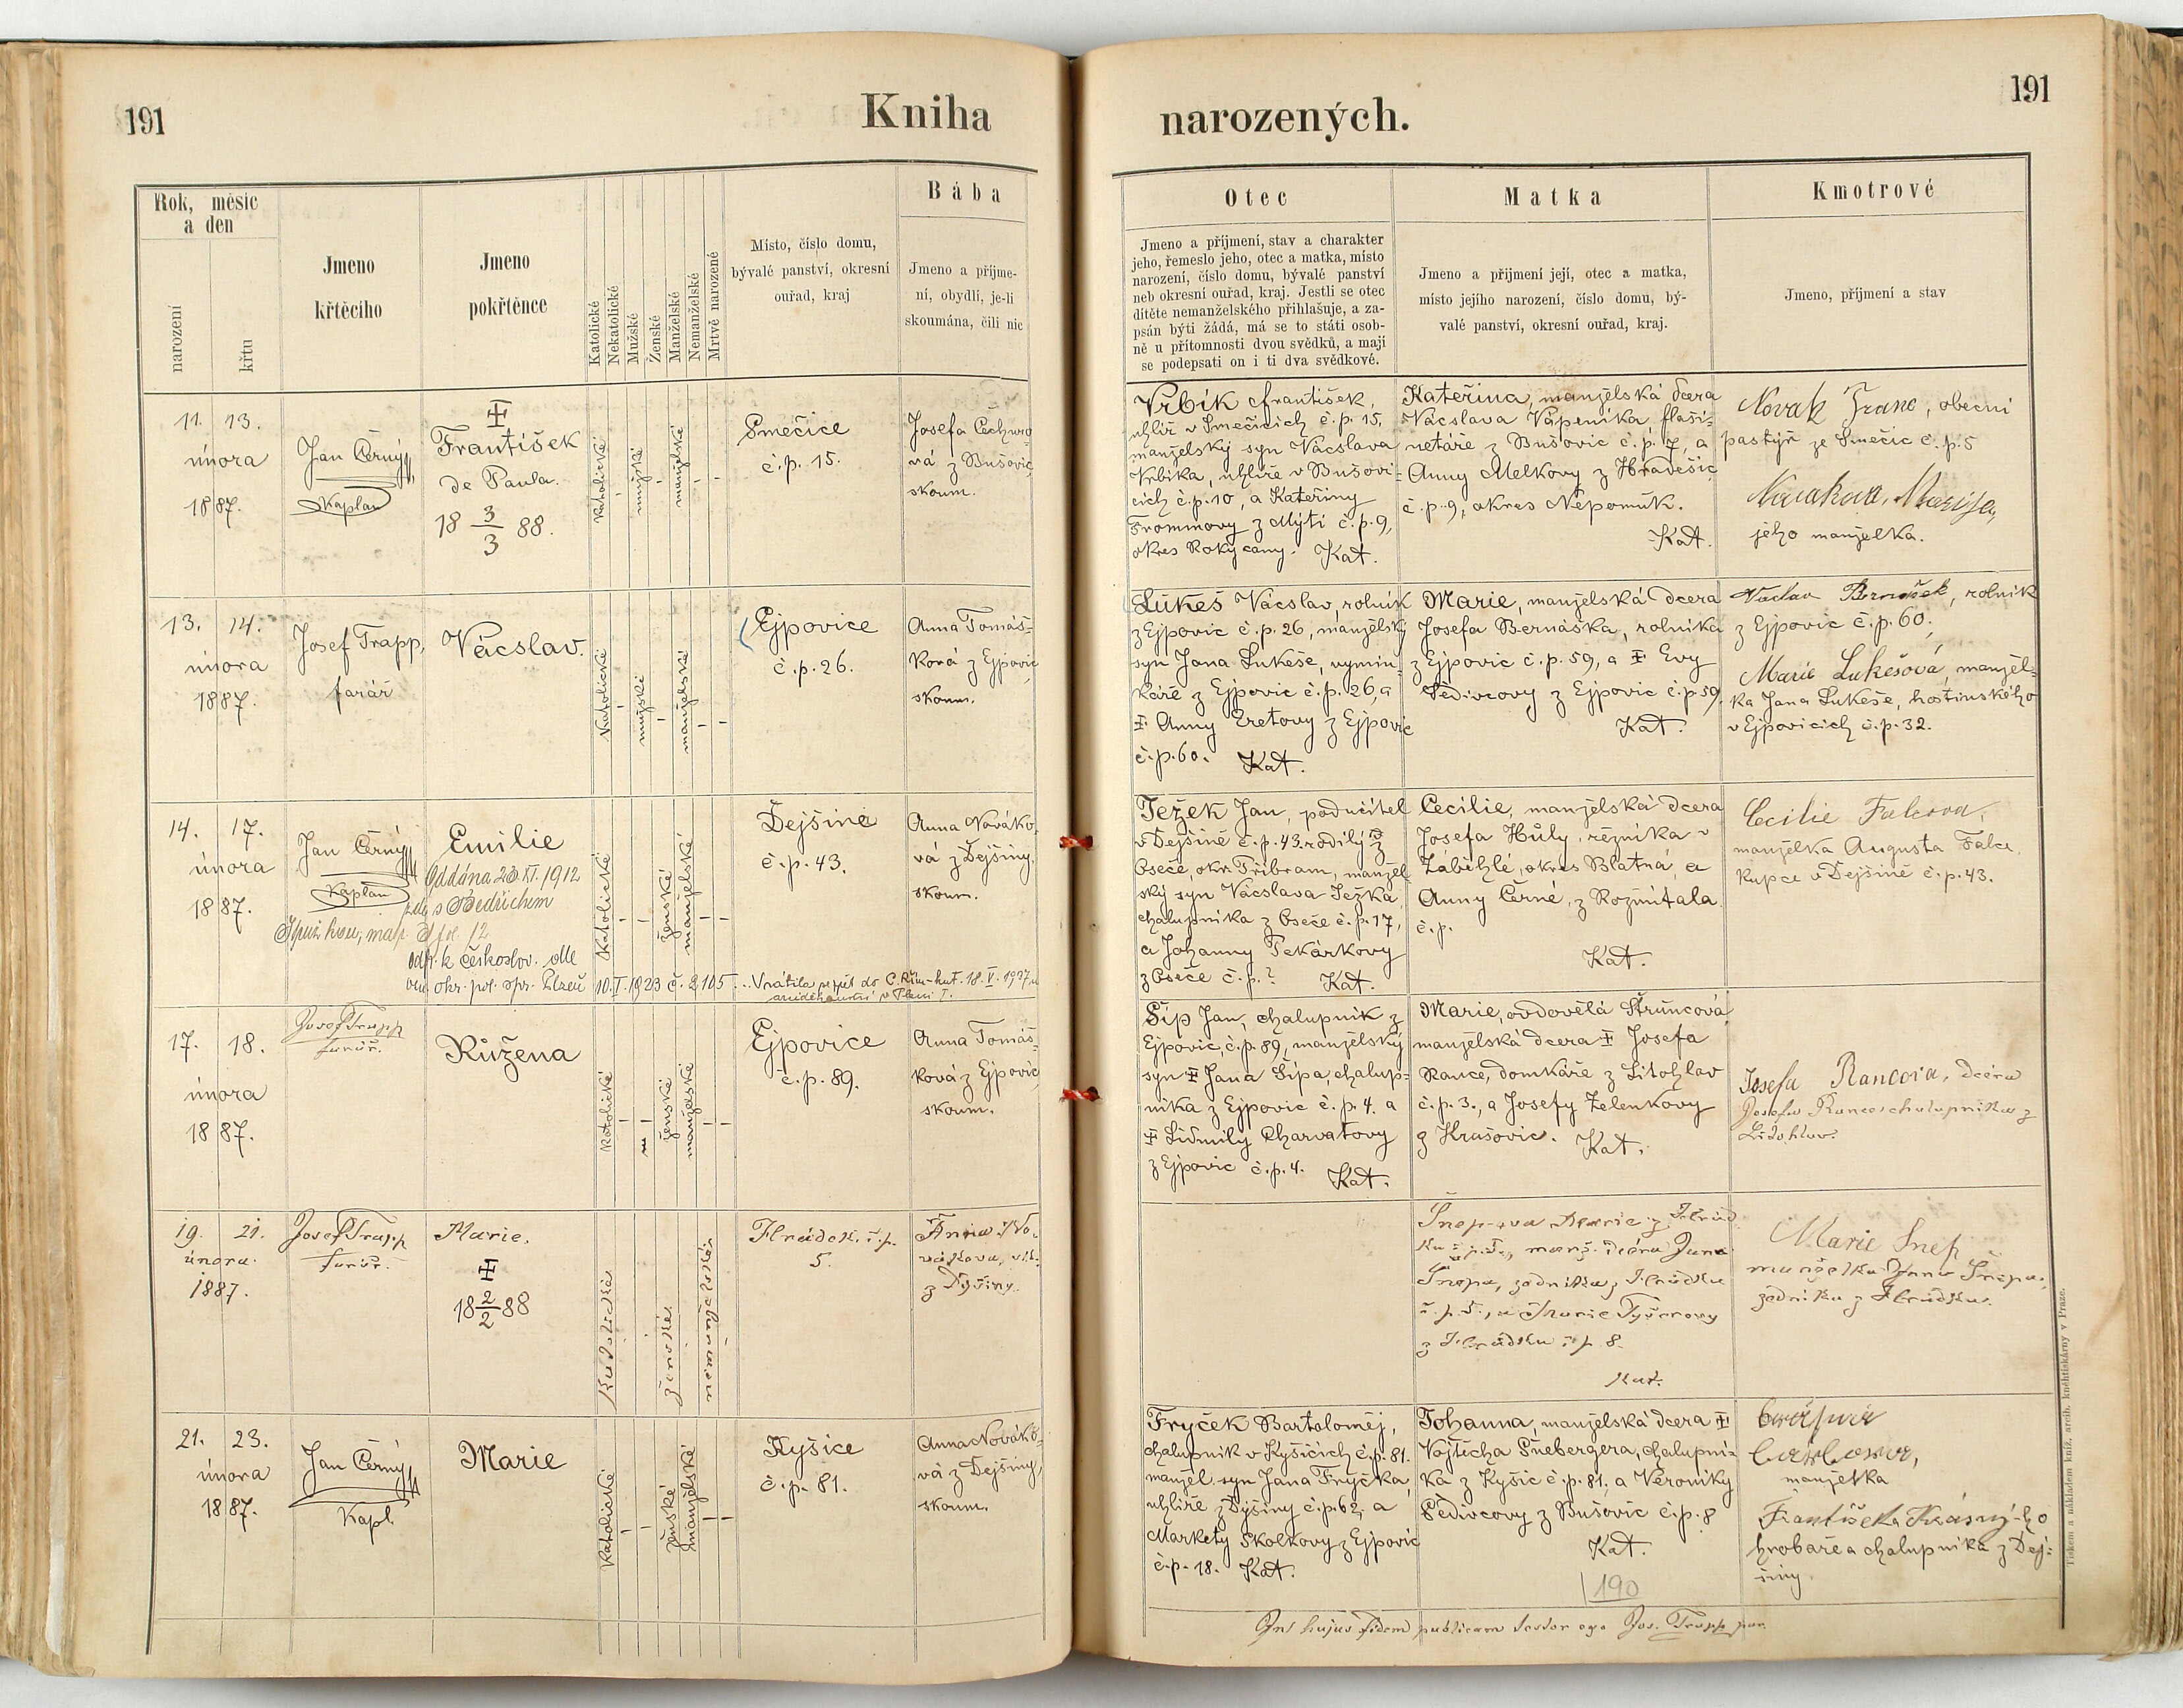 191
Kniha
narozených.
191
Rok, měsíc
a den
narození
křtu
Jmeno
křtěcího
Jmeno
pokřtěnce
Katolické
Nekatolické
Mužské
Ženské
Manželské
Nemanželské
Mrtvě narozené
Místo, číslo domu,
bývalé panství, okresní
ouřad, kraj
Bába
Jmeno a příjme-
ní, obydlí, je-li
skoumána, čili nic
Otec
Jmeno a příjmení, stav a charakter
jeho, řemeslo jeho, otec a matka, místo
narození, číslo domu, bývalé panství
neb okresní ouřad, kraj. Jestli se otec
dítěte nemanželského přihlašuje, a za-
psán býti žádá, má se to státi osob-
ně u přítomnosti dvou svědků, a mají
se podepsati on i ti dva svědkové.
Matka
Jmeno a přijmení její, otec a matka,
místo jejího narození, číslo domu, bý-
valé panství, okresní ouřad, kraj.
Kmotrové
Jmeno, příjmení a stav
11. 13.
února
1887.
Jan Černý
Kaplan
František
de Paula.
18 3/3 88.
katolické
mužské
manželské
Smečice
č.p. 15.
Josefa Čechuro-
vá z Bušovic,
skoum.
Vrbík František,
uhlíř v Smečicích č.p. 15,
manželský syn Václava
Vrbíka, uhlíře v Bušovi-
cích č.p. 10, a Kateřiny
Frommovy z Mýti č.p. 9,
okres Rokycany. Kat.
Kateřina, manželská dcera
Václava Vápeníka, flaši-
netáře z Bušovic č.p. 7, a
Anny Melkovy z Hradešic
č.p. 9, okres Nepomuk.
Kat.
Novak Franc, obecní
pastýř ze Smečic č.p. 5
Novakova, Marije,
jeho manželka.
13. 14.
února
1887.
Josef Trapp,
farář
Václav.
katolické
mužské
manželské
Ejpovice
č.p. 26.
Anna Tomáš-
ková z Ejpovic
skoum.
Lukeš Václav, rolník
z Ejpovic č.p. 26, manželský
syn Jana Lukeše, výmin-
káře z Ejpovic č.p. 26, a
Anny Eretovy z Ejpovic
č.p. 60. Kat.
Marie, manželská dcera
Josefa Bernáška, rolníka
z Ejpovic č.p. 59, a Evy
Šedivcovy z Ejpovic č.p. 59.
Kat.
Václav Bernášek, rolník
z Ejpovic č.p. 60.
Marie Lukešová, manžel-
ka Jana Lukeše, hostinského
v Ejpovicích č.p. 32.
14. 17.
února
1887.
Jan Černý
Kaplan
Emilie
Oddána 23. XI. 1912
s Bedřichem
odst. k českoslov. dle
okr. pol. spr. Plzeň 10. I. 1923 č. 2105
Vrátila se zpět do C. Řím-kat. 18. V. 1937
katolické
ženské
manželské
Dejšině
č.p. 43.
Anna Nováko-
vá z Dejšiny,
skoum.
Ježek Jan, podučitel
v Dejšině č.p. 43. rodilý z
Oseče, okr. Příbram, manžel-
ský syn Václava Ježka,
chalupníka z Oseče č.p. 17,
a Johanny Pekárkovy
z Oseče č.p.? Kat.
Cecilie, manželská dcera
Josefa Hůly, řezníka v
Záběhlé, okres Blatná, a
Anny Černé, z Rožmitála
č.p.
Kat.
Cecilie Falcova,
manželka Augusta Falce,
kupce v Dejšině č.p. 43.
17. 18.
února
1887.
Josef Trapp
farář.
Růžena
katolické
ženské
manželské
Ejpovice
č.p. 89.
Anna Tomáš-
ková z Ejpovic,
skoum.
Šíp Jan, chalupník z
Ejpovic, č.p. 89, manželský
syn Jana Šípa, chalup-
níka z Ejpovic č.p. 4. a
Lidmily Charvatovy
z Ejpovic č.p. 4. Kat.
Marie, ovdovělá Štruncová,
manželská dcera Josefa
Rance, domkáře z Litohlav
č.p. 3., a Josefy Zelenkovy
z Krašovic. Kat.
Josefa Rancova, dcera
Josefa Rance chalupníka z
Litohlav.
19. 21.
února
1887.
Josef Trapp
farář.
Marie.
18 2/2 88
Katolické
ženské
nemanželské
Hrádek č.p.
5.
Anna No-
vákova,
z Dyšiny.
Šnepova Marie z Hrád-
ku č.p. 5., manž. dcera Jana
Šnepa, zedníka z Hrádku
č.p. 5., a Marie Tyšerovy
z Hrádku č.p. 8.
Kat.
Marie Šnep,
manželka Jana Šnepa,
zedníka z Hrádku.
21. 23.
února
1887.
Jan Černý
Kapl.
Marie
katolické
ženské
manželské
Kyšice
č.p. 81.
Anna Nováko-
vá z Dejšiny,
skoum.
Fryček Bartoloměj,
chalupník v Kyšicích č.p. 81.
manžel. syn Jana Fryčka,
uhlíře z Dýšiny č.p. 62, a
Markety Skolkovy z Ejpovic
č.p. 18. Kat.
Johanna, manželská dcera
Vojtěcha Šnebergera, chalupní-
ka z Kyšic č.p. 81, a Veroniky
Šedivcovy z Bušovic č.p. 8
Kat.
manželka
Františka Krásný-ho
hrobaře a chalupníka z Dej-
šiny.
190
Jos. Trapp
Tiskem a nákladem kníž. arcib. kněhtiskárny v Praze.